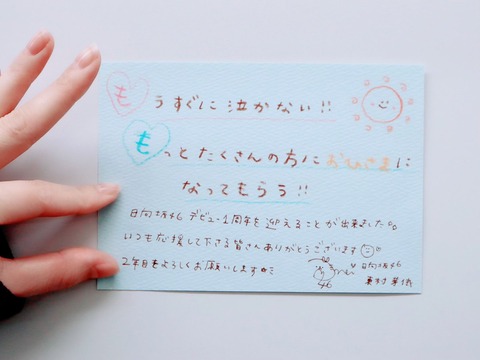 もうすぐに泣かない!!
もっとたくさんの方におひさまに
なってもらう!!
日向坂46デビュー1周年を迎えることが出来ました。
いつも応援して下さる皆さんありがとうございます
2年目もよろしくお願いします
mei
46
日向坂46
東村芽依